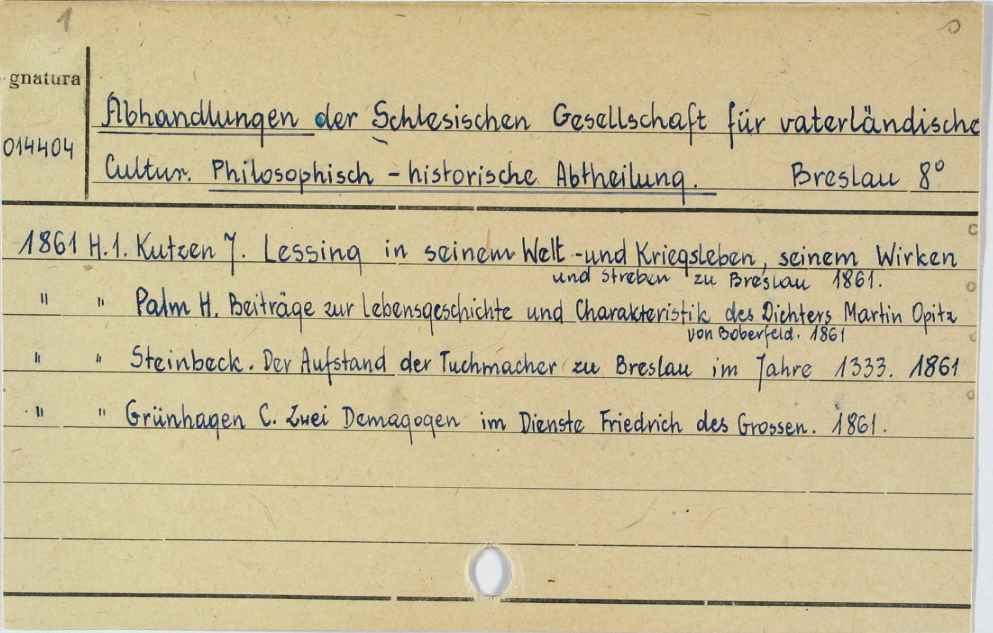 1
gnatura
014404
Abhandlungen der Schlesischen Gesellschaft für vaterländische
Cultur. Philosophisch - historische Abtheilung. Breslau 8°
1861 H.1. Kutzen J. Lessing in seinem Welt -und Kriegsleben, seinem Wirken
und Streben zu Breslau 1861.
" " Palm H. Beiträge zur Lebensgeschichte und Charakteristik des Dichters Martin Opitz
von Boberfeld. 1861
" " Steinbeck. Der Aufstand der Tuchmacher zu Breslau im Jahre 1333. 1861
" " Grünhagen C. Zwei Demagogen im Dienste Friedrich des Grossen. 1861.